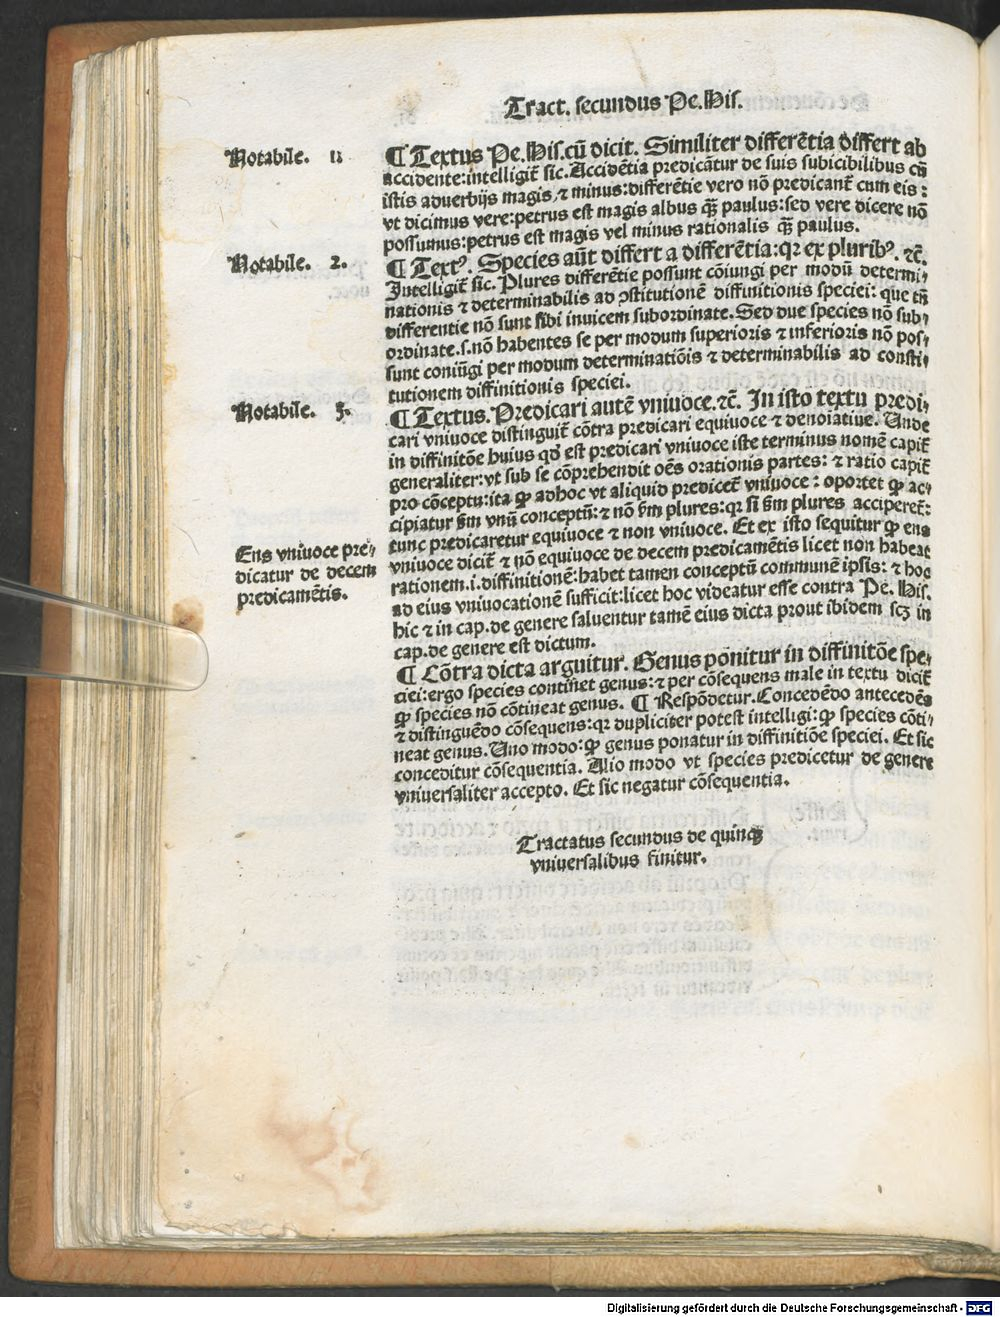 Tract. secundus Pe. His.
Notabile. 11
¶ Textus Pe. His. cū dicit. Similiter differētia differt ab
accidente: intelligit̄ sic. Accidētia predicātur de suis subicibilibus cū
istis aduerbijs magis, ⁊ minus: differētie vero nō predicant̄ cum eis:
vt dicimus vere: petrus est magis albus q̄ꝫ paulus: sed vere dicere nō
possumus: petrus est magis vel minus rationalis q̄ꝫ paulus.
Notabile. 2.
¶ Textꝰ. Species aūt differt a differētia: qꝛ ex pluribꝰ. ⁊c̄.
Intelligit̄ sic. Plures differētie possunt cōiungi per modū determi-
nationis ⁊ determinabilis ad ꝯstitutionē diffinitionis speciei: que tn̄
differentie nō sunt sibi inuicem subordinate. Sed due species nō sub-
ordinate. s. nō habentes se per modum superioris ⁊ inferioris nō pos-
sunt coniūgi per modum determinatiōis ⁊ determinabilis ad consti-
tutionem diffinitionis speciei.
Notabile. 3.
¶ Textus. Predicari autē vniuoce. ⁊c̄. In isto textu predi-
cari vniuoce distinguit̄ cōtra predicari equiuoce ⁊ denoiatiue. Unde
in diffinitōe huius qd̄ est predicari vniuoce iste terminus nomē capit̄
generaliter: vt sub se cōprehendit oēs orationis partes: ⁊ ratio capit̄
pro cōceptu: ita ꝙ adhoc vt aliquid predicet̄ vniuoce: oportet ꝙ ac-
cipiatur ẜm vnū conceptū: ⁊ nō ẜm plures: qꝛ si ẜm plures acciperet̄:
tunc predicaretur equiuoce ⁊ non vniuoce. Et ex isto sequitur ꝙ ens
Ens vniuoce pre-
dicatur de decem
predicamētis.
vniuoce dicit̄ ⁊ nō equiuoce de decem predicamētis licet non habeat
rationem. i. diffinitionē: habet tamen conceptū communē ipsis: ⁊ hoc
ad eius vniuocationē sufficit: licet hoc videatur esse contra Pe. His.
hic ⁊ in cap. de genere saluentur tamē eius dicta prout ibidem scꝫ in
cap. de genere est dictum.
¶ Cōtra dicta arguitur. Genus ponitur in diffinitōe spe-
ciei: ergo species continet genus: ⁊ per cōsequens male in textu dicit̄
ꝙ species nō cōtineat genus. ¶ Respōdetur. Concedēdo antecedēs
⁊ distinguēdo cōsequens: qꝛ dupliciter potest intelligi: ꝙ species cōti-
neat genus. Uno modo: ꝙ genus ponatur in diffinitiōe speciei. Et sic
conceditur cōsequentia. Alio modo vt species predicetur de genere
vniuersaliter accepto. Et sic negatur cōsequentia.
Tractatus secundus de quinqꝫ
vniuersalibus finitur.
Digitalisierung gefördert durch die Deutsche Forschungsgemeinschaft - DFG